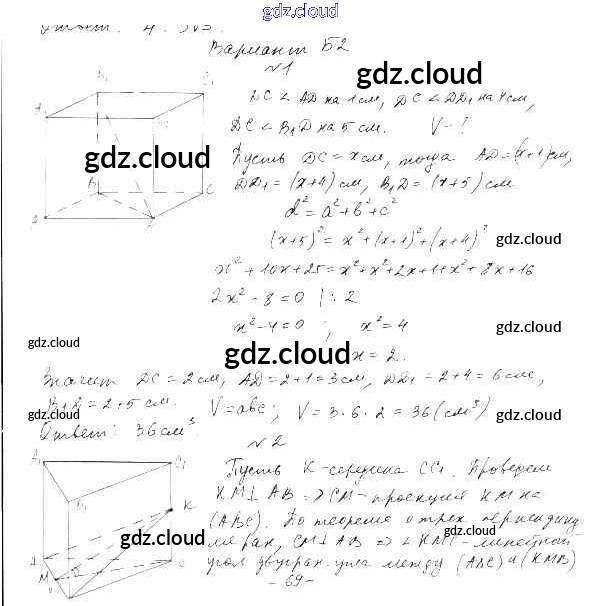 gdz.cloud
Вариант Б2
№1
DC < AD на 1 см, DC < DD₁ на 4 см,
gdz.cloud
DC < B₁D на 5 см. V - ?
gdz.cloud
Пусть DC = x см, тогда AD = (x+1) см,
DD₁ = (x+4) см, B₁D = (x+5) см
d² = a² + b² + c²
(x+5)² = x² + (x+1)² + (x+4)²
gdz.cloud
x² + 10x + 25 = x² + x² + 2x + 1 + x² + 8x + 16
2x² - 8 = 0 | : 2
x² - 4 = 0 ; x² = 4
gdz.cloud
gdz.cloud
gdz.cloud
x = 2.
Значит DC = 2 см, AD = 2+1 = 3 см, DD₁ = 2+4 = 6 см,
B₁D = 2+5 см. V = abc; V = 3·6·2 = 36 (см³)
gdz.cloud
gdz.cloud
Ответ: 36 см³.
№2
A₁ C₁ Пусть K - середина CC₁. Проведем
B₁
KM ⊥ AB => CM - проекция KM на
K
gdz.cloud
(ABC). По теореме о трех перпендику
gdz.cloud
gdz.cloud
лярах, CM ⊥ AB => ∠KMC - линейный
A C
угол двугран. угла между (ABC) и (KMB)
M
- 69 -